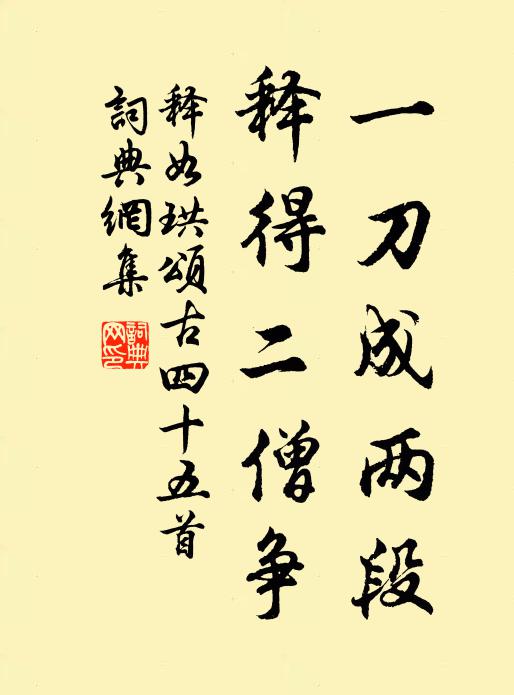 一刀成两段
释得二僧争
释如珙頌古四十五首
詞典網集
詞典网印